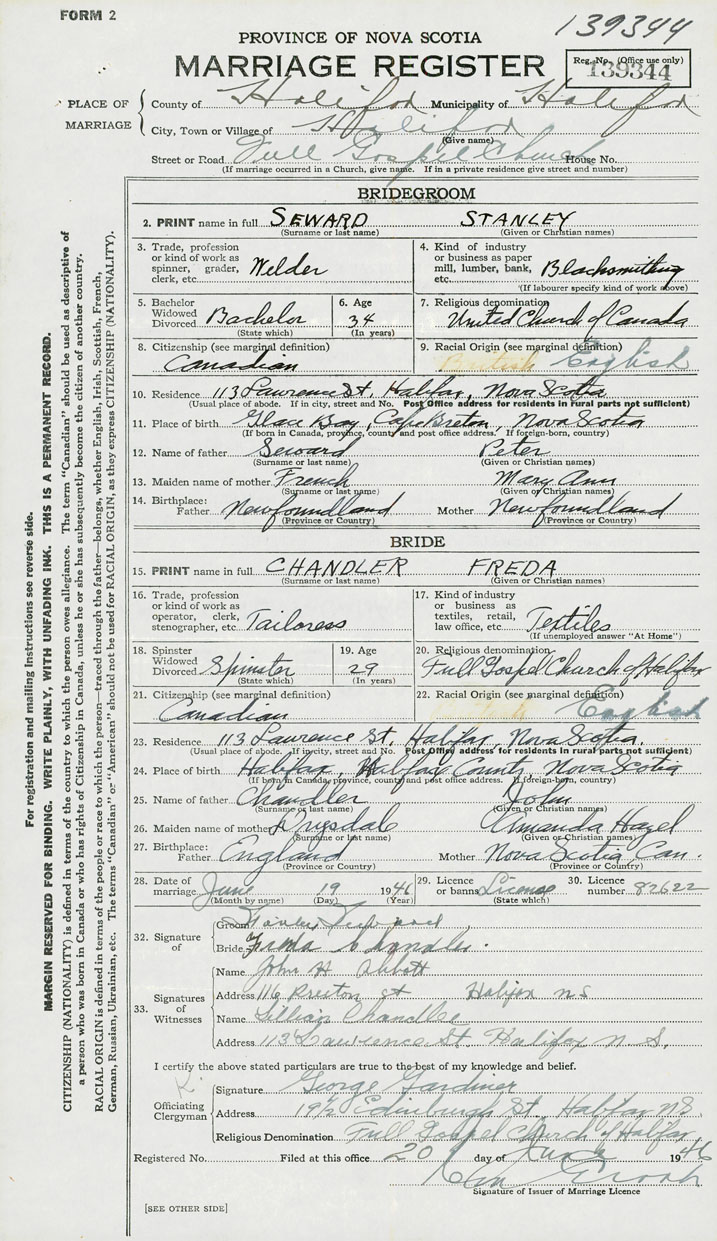 FORM 2
139344
PROVINCE OF NOVA SCOTIA
MARRIAGE REGISTER
Reg. No. (Office use only)
139344
PLACE OF MARRIAGE
County of Halifax Municipality of Halifax
City, Town or Village of Halifax
(Give name)
Street or Road Full Gospel Church House No.
(If marriage occurred in a Church, give name. If in a private residence give street and number)
BRIDEGROOM
2. PRINT name in full SEWARD STANLEY
(Surname or last name) (Given or Christian names)
3. Trade, profession or kind of work as spinner, grader, clerk, etc. Welder
4. Kind of industry or business as paper mill, lumber, bank, etc. Blacksmithing
(If labourer specify kind of work above)
5. Bachelor Widowed Divorced Bachelor
(State which)
6. Age 34
(In years)
7. Religious denomination
United Church of Canada
8. Citizenship (see marginal definition)
Canadian
9. Racial Origin (see marginal definition)
British English
10. Residence 113 Lawrence St. Halifax, Nova Scotia
(Usual place of abode. If in city, street and No. Post Office address for residents in rural parts not sufficient)
11. Place of birth Glace Bay, Cape Breton, Nova Scotia
(If born in Canada, province, county and post office address. If foreign-born, country)
12. Name of father Seward Peter
(Surname or last name) (Given or Christian names)
13. Maiden name of mother French Mary Ann
(Surname or last name) (Given or Christian names)
14. Birthplace:
Father Newfoundland Mother Newfoundland
(Province or Country) (Province or Country)
BRIDE
15. PRINT name in full CHANDLER FREDA
(Surname or last name) (Given or Christian names)
16. Trade, profession or kind of work as operator, clerk, stenographer, etc. Tailoress
17. Kind of industry or business as textiles, retail, law office, etc. Textiles
(If unemployed answer "At Home")
18. Spinster Widowed Divorced Spinster
(State which)
19. Age 29
(In years)
20. Religious denomination
Full Gospel Church of Halifax
21. Citizenship (see marginal definition)
Canadian
22. Racial Origin (see marginal definition)
English
23. Residence 113 Lawrence St. Halifax, Nova Scotia.
(Usual place of abode. If in city, street and No. Post Office address for residents in rural parts not sufficient)
24. Place of birth Halifax, Halifax County, Nova Scotia
(If born in Canada, province, county and post office address. If foreign-born, country)
25. Name of father Chandler John
(Surname or last name) (Given or Christian names)
26. Maiden name of mother Drysdale Amanda Hazel
(Surname or last name) (Given or Christian names)
27. Birthplace:
Father England Mother Nova Scotia Can.
(Province or Country) (Province or Country)
28. Date of marriage June 19 1946
(Month by name) (Day) (Year)
29. Licence or banns License
(State which)
30. Licence number 82622
32. Signature of
Groom Stanley Seward
Bride Freda Chandler.
33. Signatures of Witnesses
Name John H Abbott
Address 116 Preston st Halifax ns
Name Lillian Chandler
Address 113 Lawrence St. Halifax N.S.
I certify the above stated particulars are true to the best of my knowledge and belief.
Officiating Clergyman
Signature George Gardiner
Address 19½ Edinburgh St, Halifax N.S.
Religious Denomination Full Gospel Church of Halifax
Registered No. Filed at this office 20 day of June 1946
Signature of Issuer of Marriage Licence
[SEE OTHER SIDE]
For registration and mailing instructions see reverse side.
MARGIN RESERVED FOR BINDING. WRITE PLAINLY, WITH UNFADING INK. THIS IS A PERMANENT RECORD.
CITIZENSHIP (NATIONALITY) is defined in terms of the country to which the person owes allegiance. The term "Canadian" should be used as descriptive of
a person who was born in Canada or who has rights of Citizenship in Canada, unless he or she has subsequently become the citizen of another country.
RACIAL ORIGIN is defined in terms of the people or race to which the person—traced through the father—belongs, whether English, Irish, Scottish, French,
German, Russian, Ukrainian, etc. The terms "Canadian" or "American" should not be used for RACIAL ORIGIN, as they express CITIZENSHIP (NATIONALITY).